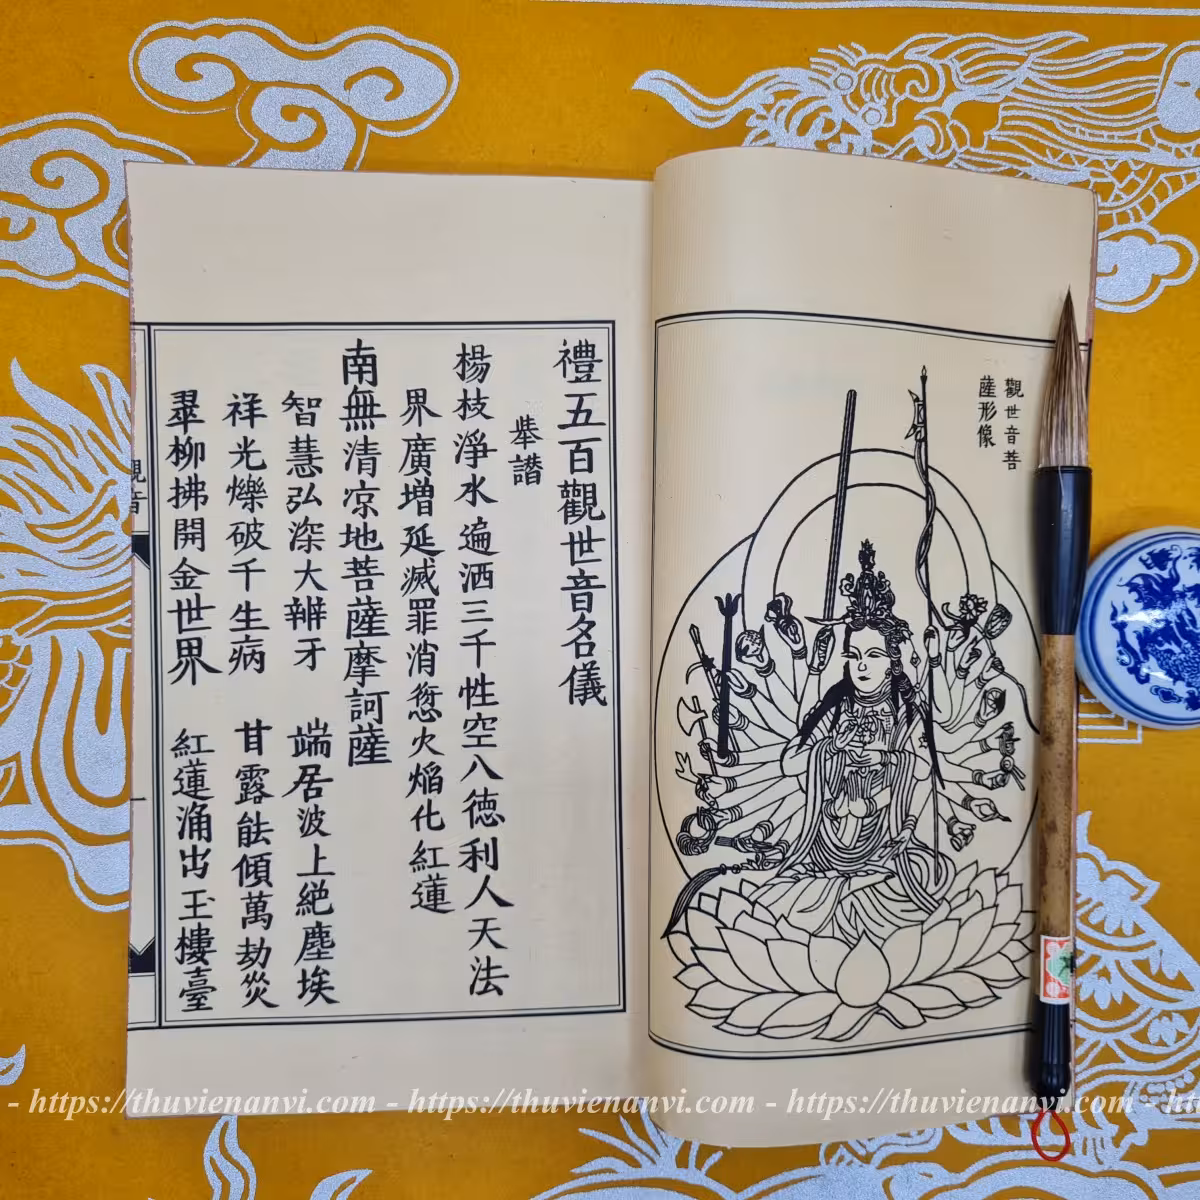 觀世音菩
薩形像
禮五百觀世音名儀
舉讃
楊枝淨水遍洒三千性空八德利人天法
界廣増延滅罪消愆火焰化紅蓮
南無清凉地菩薩摩訶薩
智慧弘深大辯牙 端居波上絶塵埃
祥光爍破千生病 甘露能傾萬劫災
翠柳拂開金世界 紅蓮涌出玉樓臺
觀音
- https://thuvienanvi.com - https://thuvienanvi.com - https://thuvienanvi.com - ht